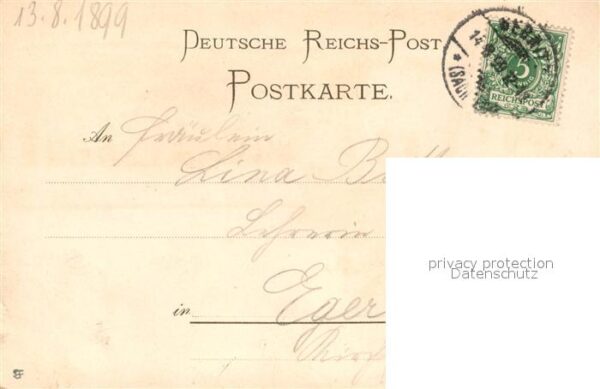 13.8.1899
DEUTSCHE REICHS-POST
POSTKARTE.
An Fräulein
Lina
Lehrerin
in Eger
5
REICHSPOST
privacy protection
Datenschutz